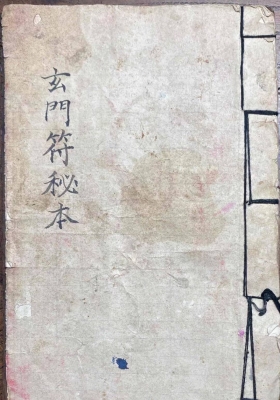 玄門符秘本